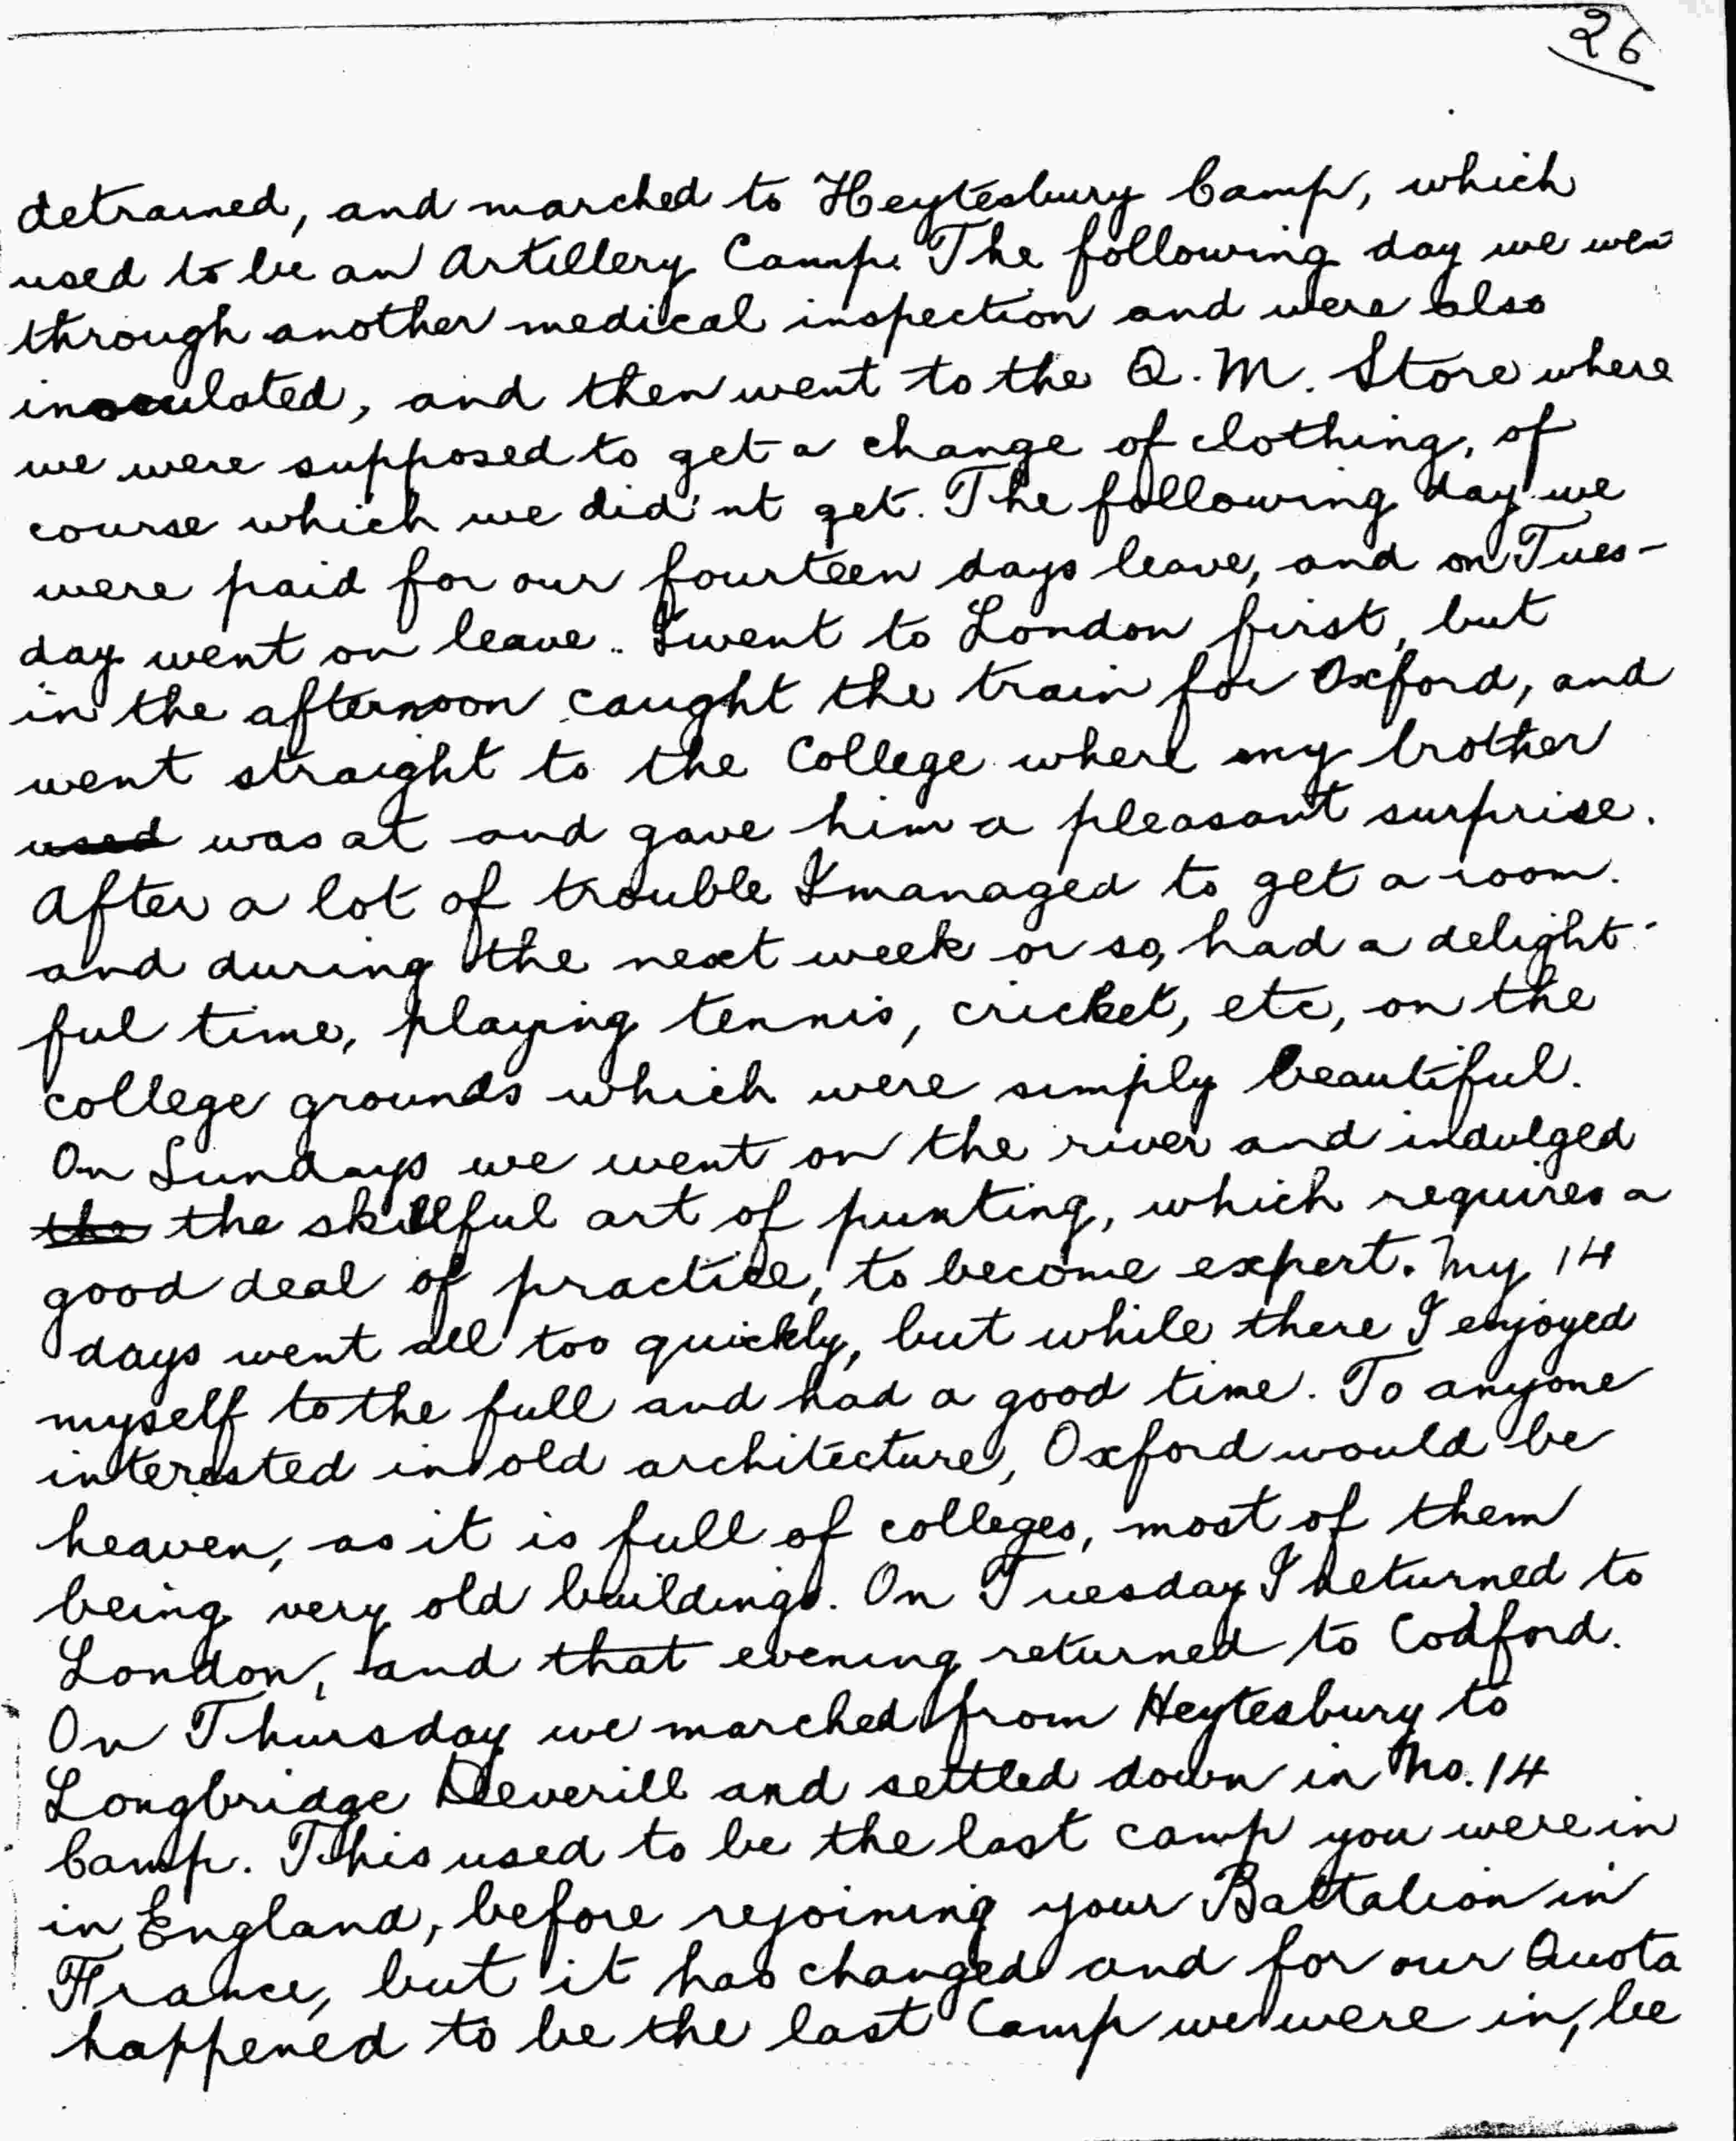 26
detrained, and marched to Heytesbury Camp, which
used to be an Artillery Camp. The following day we wen
through another medical inspection and were also
inoculated, and then went to the Q.M. Store where
we were supposed to get a change of clothing, of
course which we did'nt get. The following day we
were paid for our fourteen days leave, and on Tues-
day went on leave.. I went to London first, but
in the afternoon caught the train for Oxford, and
went straight to the College where my brother
used was at and gave him a pleasant surprise.
After a lot of trouble I managed to get a room.
and during the next week or so, had a delight-
ful time, playing tennis, cricket, etc, on the
college grounds which were simply beautiful.
On Sundays we went on the river and indulged
the the skillful art of punting, which requires a
good deal of practice, to become expert. My 14
days went all too quickly, but while there I enjoyed
myself to the full and had a good time. To anyone
interested in old architecture, Oxford would be
heaven, as it is full of colleges, most of them
being very old buildings. On Tuesday I returned to
London, and that evening returned to Codford.
On Thursday we marched from Heytesbury to
Longbridge Deverill and settled down in No. 14
Camp. This used to be the last camp you were in
in England, before rejoining your Battalion in
France, but it has changed and for our Quota
happened to be the last Camp we were in, be